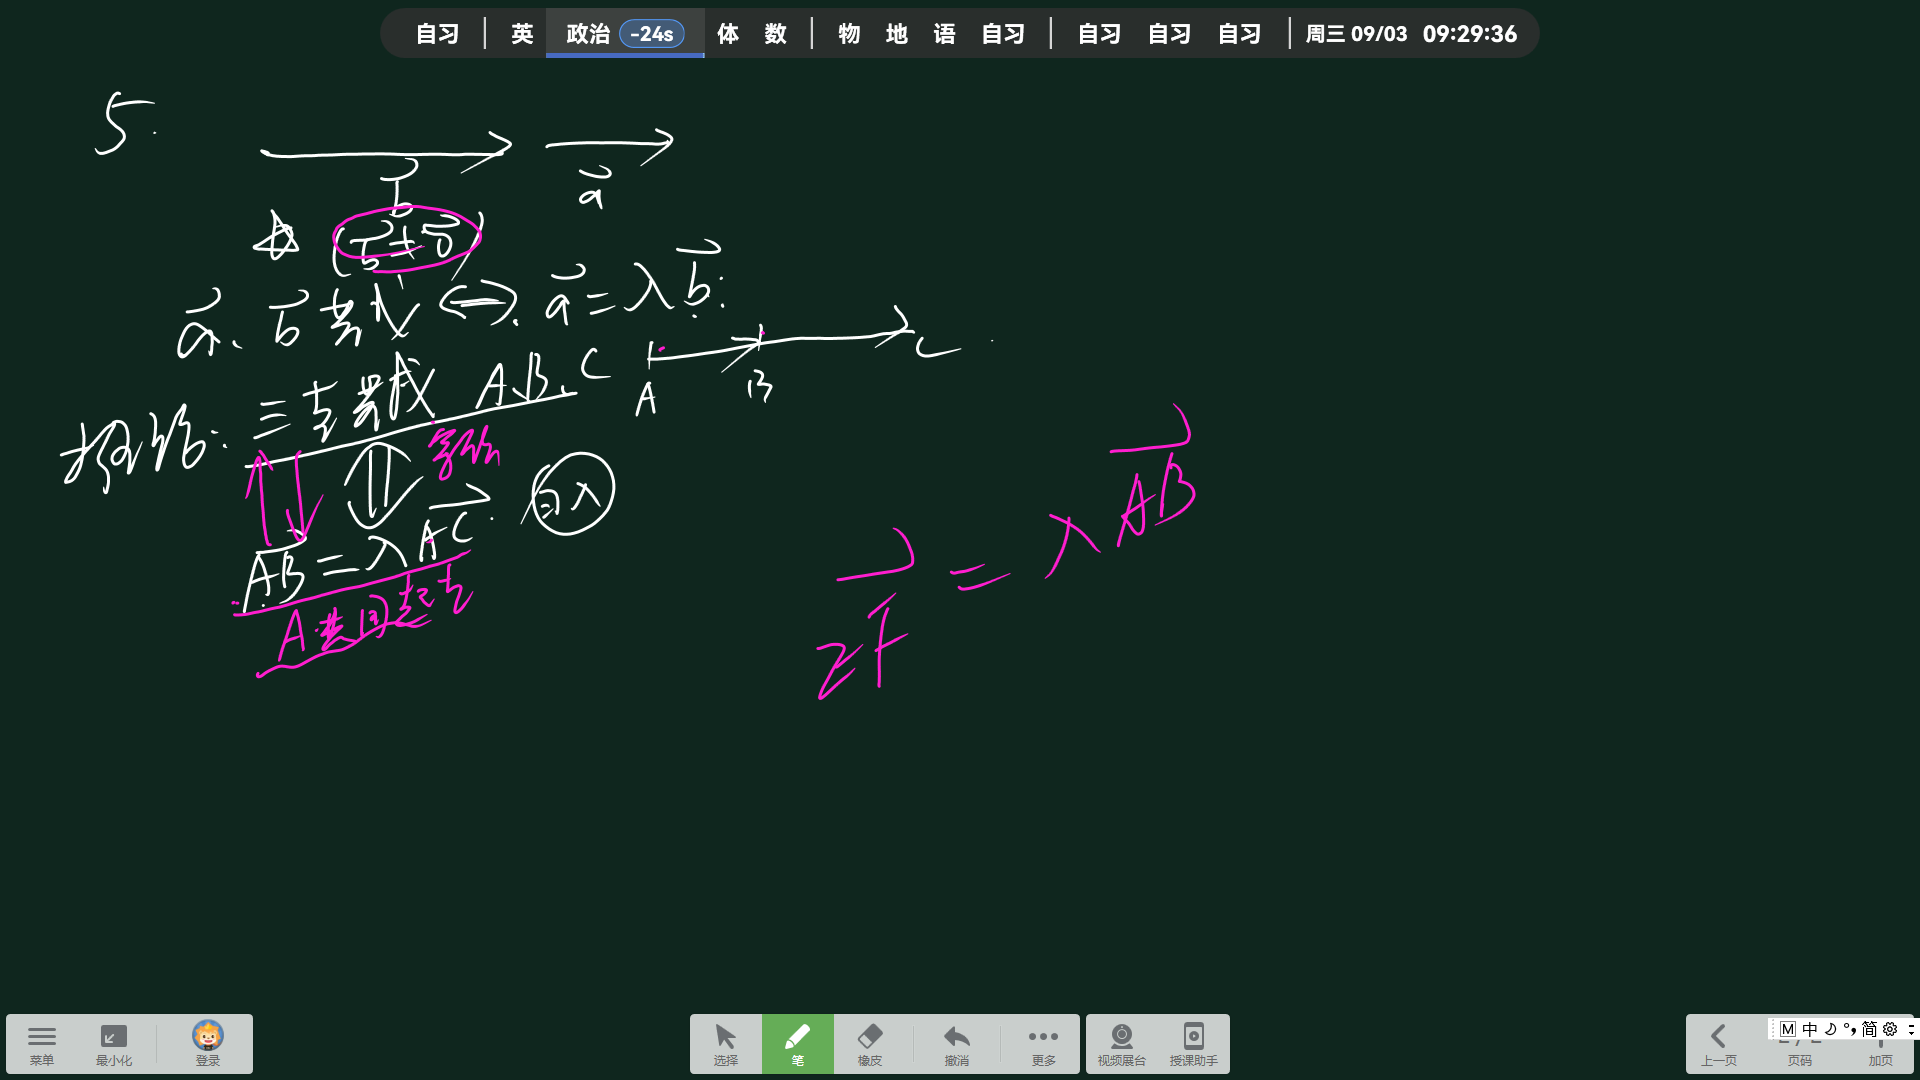 自习 | 英 政治 -24s 体 数 | 物 地 语 自习 | 自习 自习 自习 | 周三 09/03 09:29:36
5.
b a
(b≠0)
a、b共线 ⟺ a=λb
A B C
推论：三点共线 A、B、C
AB=λAC
A共同起点
AB
=λ
菜单 最小化 登录 选择 笔 橡皮 撤消 更多 视频展台 授课助手 上一页 页码 加页
M 中 简